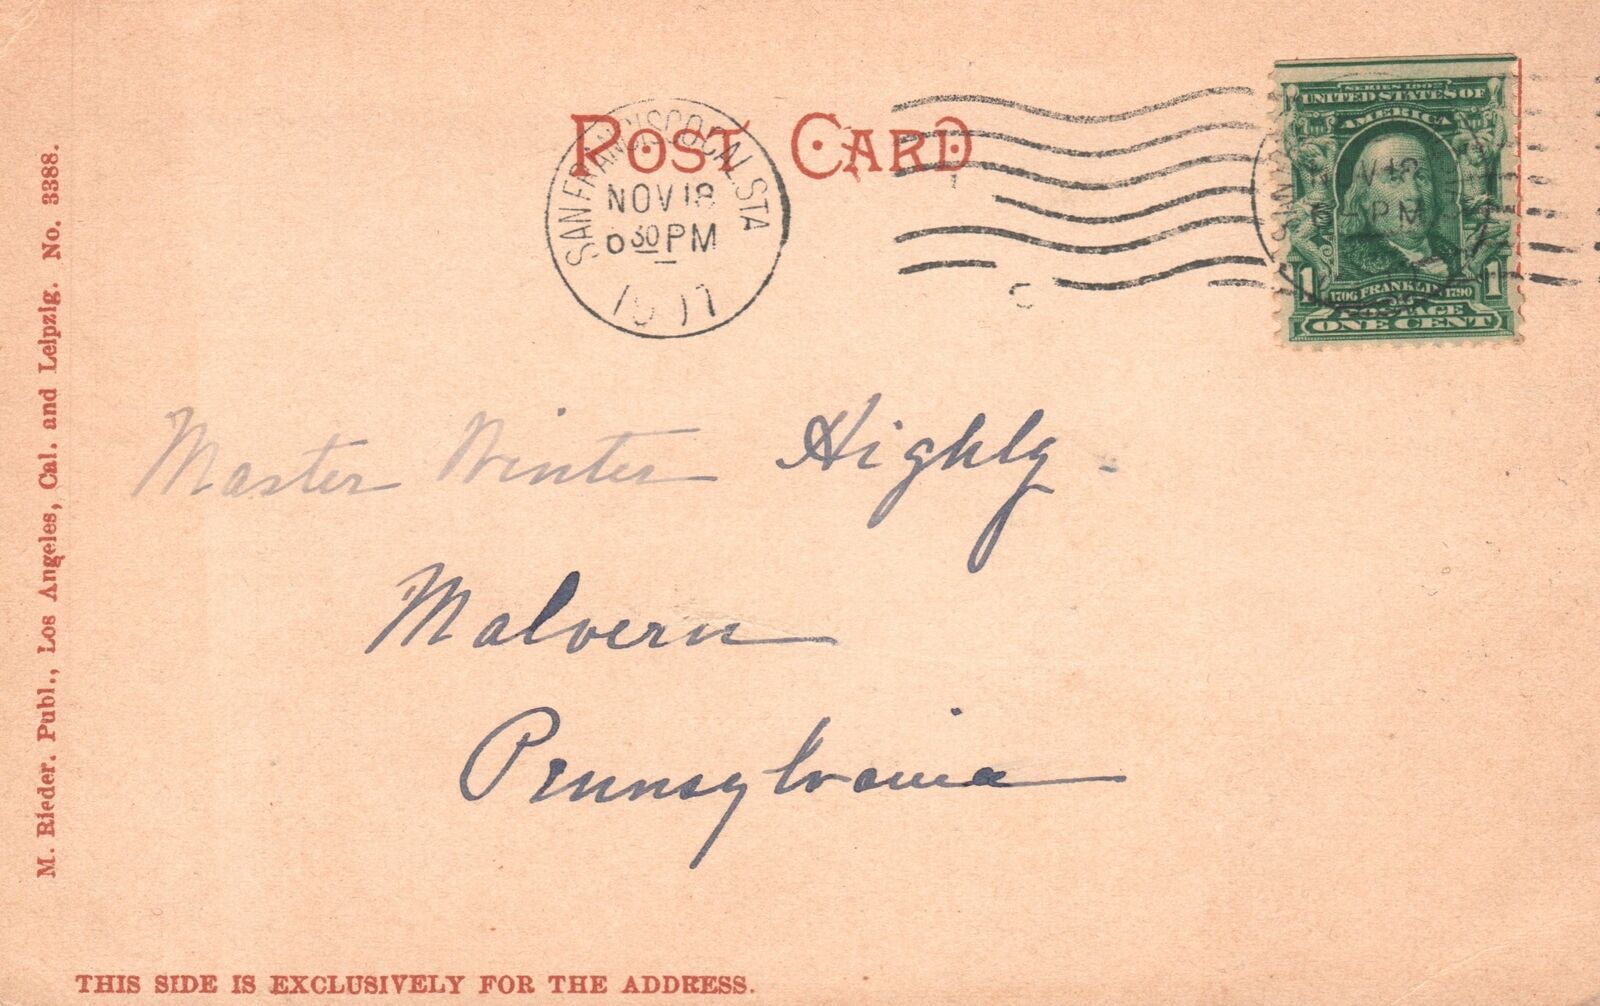 POST CARD
SAN FRANCISCO CAL. STA
NOV 18
30 PM
SERIES 1902
UNITED STATES OF
AMERICA
1 1706 FRANKLIN 1790 1
POSTAGE
ONE CENT
Master Winter Highly
Malvern
Pennsylvania
M. Rieder. Publ., Los Angeles, Cal. and Leipzig. No. 3388.
THIS SIDE IS EXCLUSIVELY FOR THE ADDRESS.